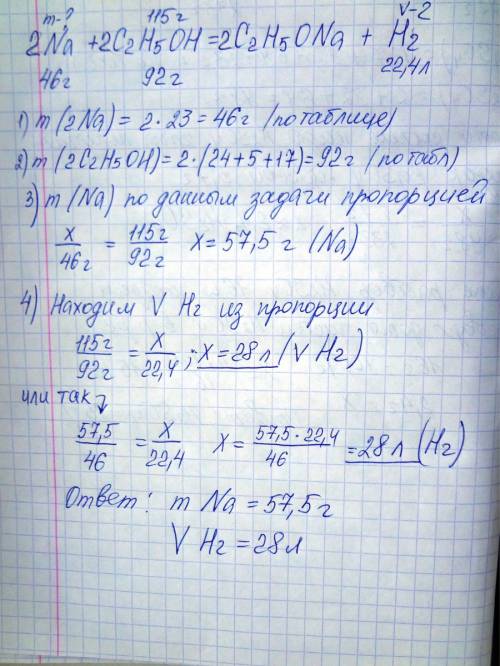 m-? 115г V-?
2Na + 2C2H5OH = 2C2H5ONa + H2
46г 92г 22,4л
1) m (2Na) = 2·23 = 46г (по таблице)
2) m (2C2H5OH) = 2·(24+5+17) = 92г (по табл)
3) m (Na) по данным задачи пропорцией
x/46г = 115г/92г x = 57,5 г (Na)
4) Находим V H2 из пропорции
115г/92г = x/22,4 ; x = 28 л (V H2)
или так
57,5/46 = x/22,4 x = 57,5·22,4/46 = 28 л (H2)
Ответ: m Na = 57,5г
V H2 = 28л